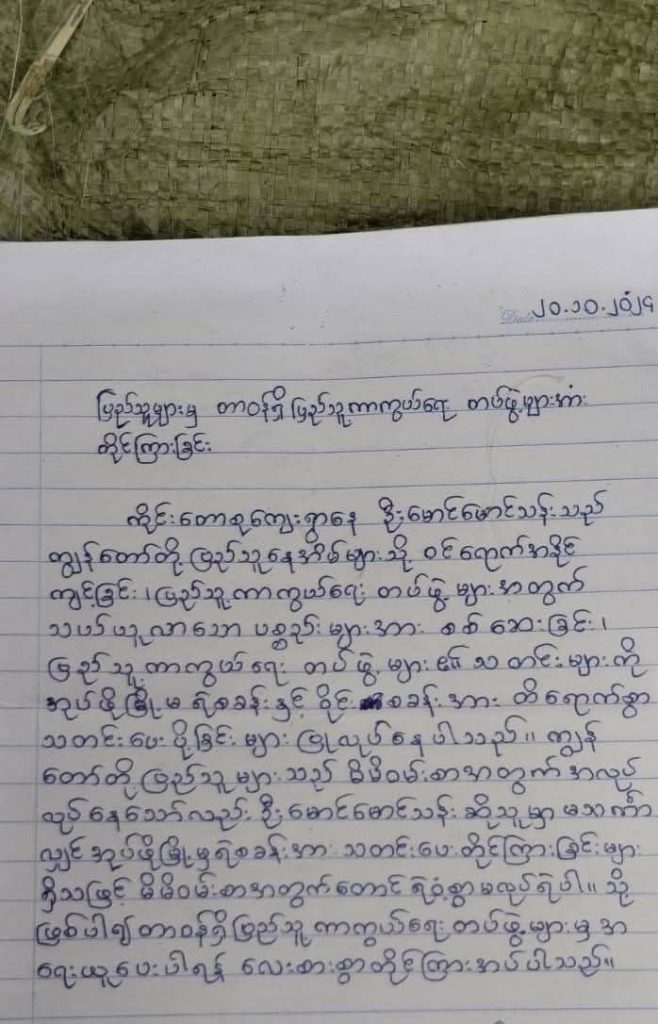 Date ၂၀.၁၀.၂၀၂၄
ပြည်သူများမှ တာဝန်ရှိပြည်သူ့ကာကွယ်ရေး တပ်ဖွဲ့များအား
တိုင်ကြားခြင်း
ကိုင်းတောစုကျေးရွာနေ ဦးမောင်မောင်သန်းသည်
ကျွန်တော်တို့ပြည်သူနေအိမ်များသို့ ဝင်ရောက်အနိုင်
ကျင့်ခြင်း၊ ပြည်သူ့ကာကွယ်ရေး တပ်ဖွဲ့ များအတွက်
သယ်ယူလာသော ပစ္စည်းများအား စစ်ဆေးခြင်း၊
ပြည်သူ့ကာကွယ်ရေး တပ်ဖွဲ့ များ၏ သတင်းများကို
အုပ်ဖိုမြို့မရဲစခန်းနှင့် ဝိုင်းစခန်းအား တိရောက်စွာ
သတင်းပေးပို့ခြင်းများ ပြုလုပ်နေပါသည်။ ကျွန်
တော်တို့ပြည်သူများသည် မိမိဝမ်းစာအတွက် အလုပ်
လုပ်နေသော်လည်း ဦးမောင်မောင်သန်း ဆိုသူမှာ မသင်္ကာ
လျှင် အုပ်ဖိုမြို့မရဲစခန်းအား သတင်းပေးတိုင်ကြားခြင်းများ
ရှိသဖြင့် မိမိဝမ်းစာအတွက်တောင် ရဲဝံ့စွာမလုပ်ရဲပါ။ သို့
ဖြစ်ပါ၍ တာဝန်ရှိပြည်သူ့ကာကွယ်ရေး တပ်ဖွဲ့များမှ အ
ရေးယူပေးပါရန် လေးစားစွာတိုင်ကြားအပ်ပါသည်။